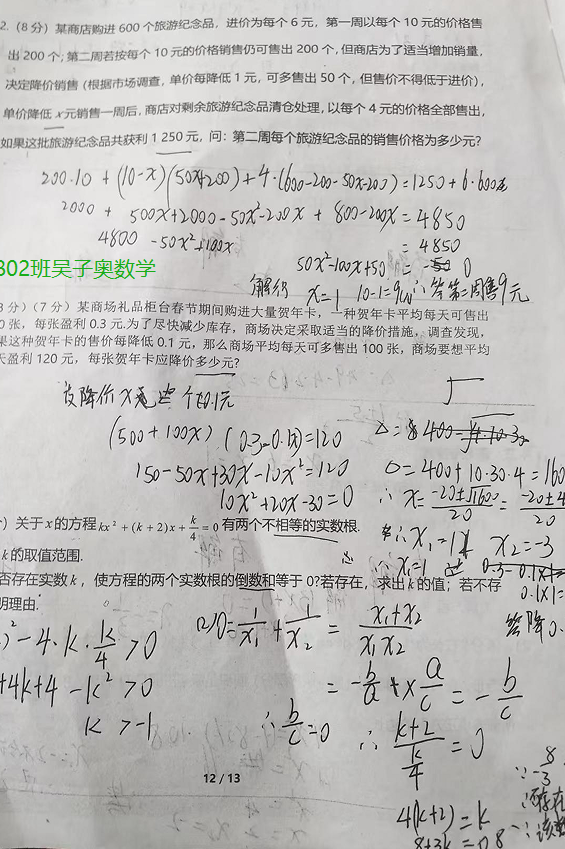 2.(8分)某商店购进600个旅游纪念品,进价为每个6元,第一周以每个10元的价格售
出200个;第二周若按每个10元的价格销售仍可售出200个,但商店为了适当增加销量,
决定降价销售(根据市场调查,单价每降低1元,可多售出50个,但售价不得低于进价),
单价降低x元销售一周后,商店对剩余旅游纪念品清仓处理,以每个4元的价格全部售出,
如果这批旅游纪念品共获利1 250元,问:第二周每个旅游纪念品的销售价格为多少元?
200·10 + (10-x)(50x+200) + 4·(600-200-50x-200) = 1250 + 6·600
2000 + 500x+2000-50x²-200x + 800-200x = 4850
4800 -50x²+100x = 4850
50x²-100x+50 = 0
解得 x=1 10-1=9 ∴答第二周售9元
302班吴子奥数学
分)(7分)某商场礼品柜台春节期间购进大量贺年卡,一种贺年卡平均每天可售出
0张,每张盈利0.3元.为了尽快减少库存,商场决定采取适当的降价措施,调查发现,
果这种贺年卡的售价每降低0.1元,那么商场平均每天可多售出100张,商场要想平均
天盈利120元,每张贺年卡应降价多少元?
设降价x 个0.1元
(500+100x)(0.3-0.1x)=120
150-50x+30x-10x²=120
10x²+20x-30=0
△=400+10·30·4=160
∴x=-20±√1600/20=-20±4/20
∴x₁=1 x₂=-3
∴x₁=1
0.1x1=
答降0.
)关于x的方程kx²+(k+2)x+k/4=0有两个不相等的实数根.
k的取值范围.
否存在实数k,使方程的两个实数根的倒数和等于0?若存在,求出k的值;若不存
明理由.
)²-4·k·k/4>0
+4k+4-k²>0
k>-1
(2)0=1/x₁+1/x₂=x₁+x₂/x₁x₂
=-b/a×a/c=-b/c
∴b/c=0 ∴k+2/k/4=0
4(k+2)=k
12 / 13